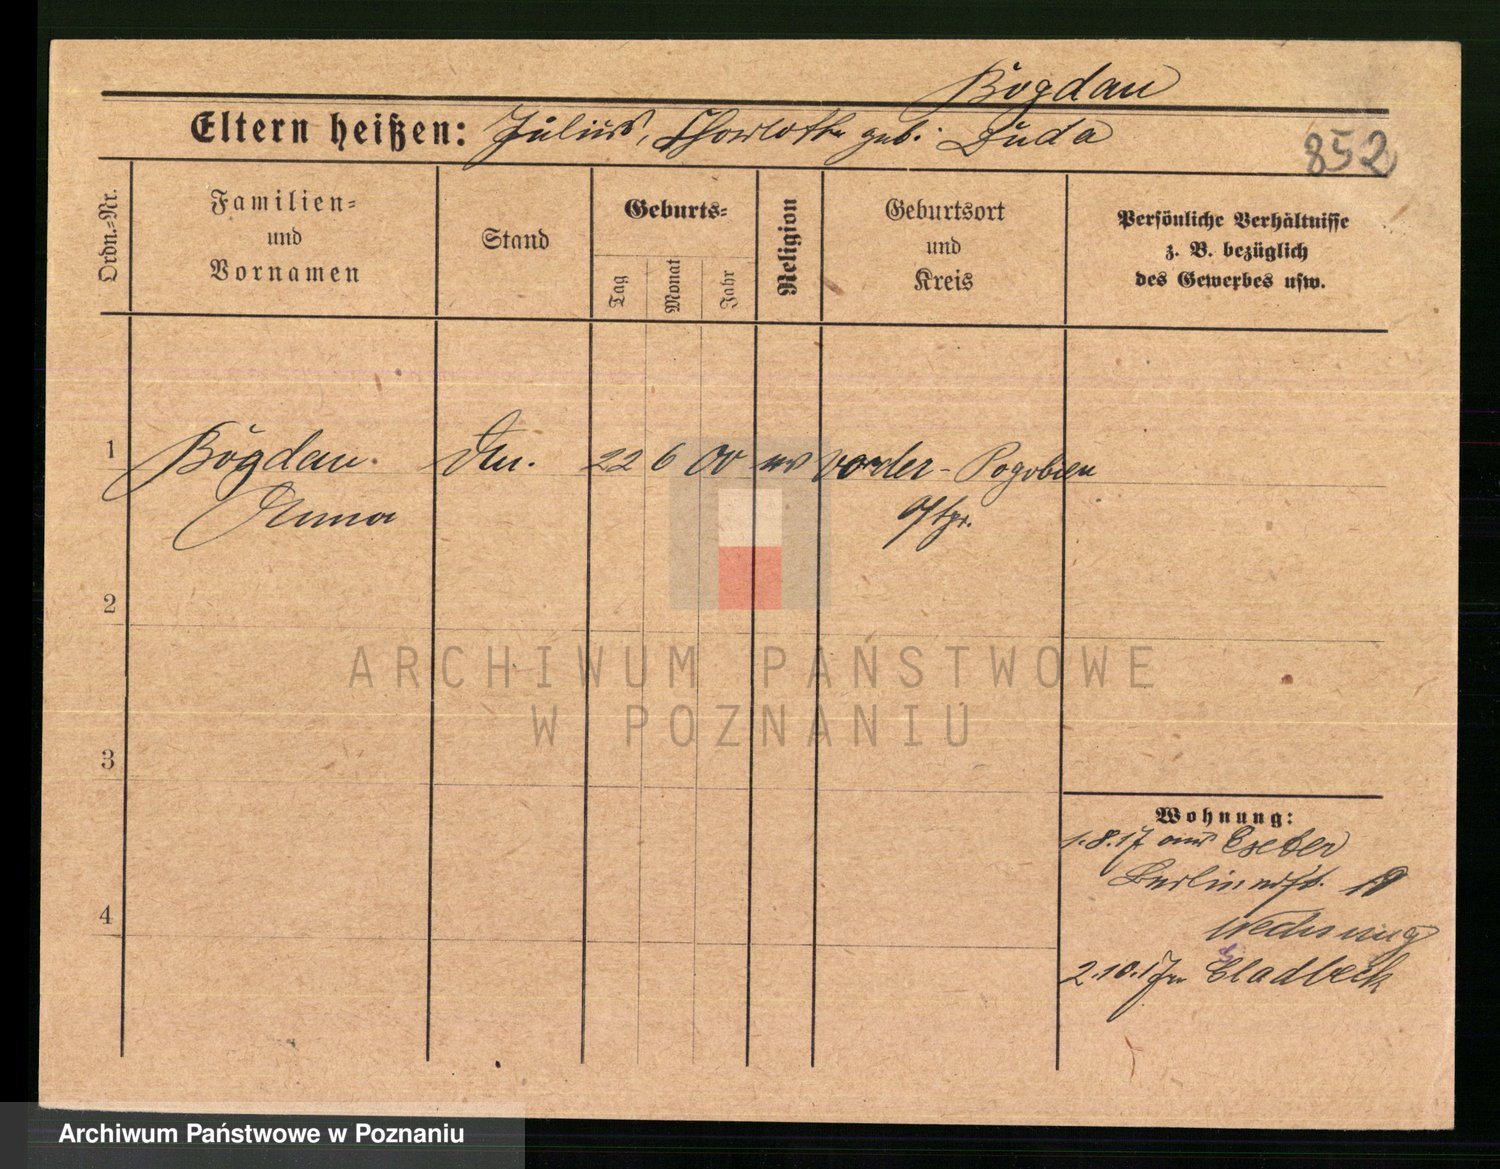 Bogdan
Eltern heißen: Julius, Charlotte geb. Duda
852
Ordn.-Nr.
Familien-
und
Vornamen
Stand
Geburts-
Tag
Monat
Jahr
Religion
Geburtsort
und
Kreis
Persönliche Verhältnisse
z. B. bezüglich
des Gewerbes usw.
1
Bogdan
22 6 00 ev Vorder-Pogobien
Anna
Ostpr.
2
ARCHIWUM PAŃSTWOWE
W POZNANIU
3
Wohnung:
1.8.17 aus
Berlinerst.
4
2.10.17 Gladbeck
Archiwum Państwowe w Poznaniu